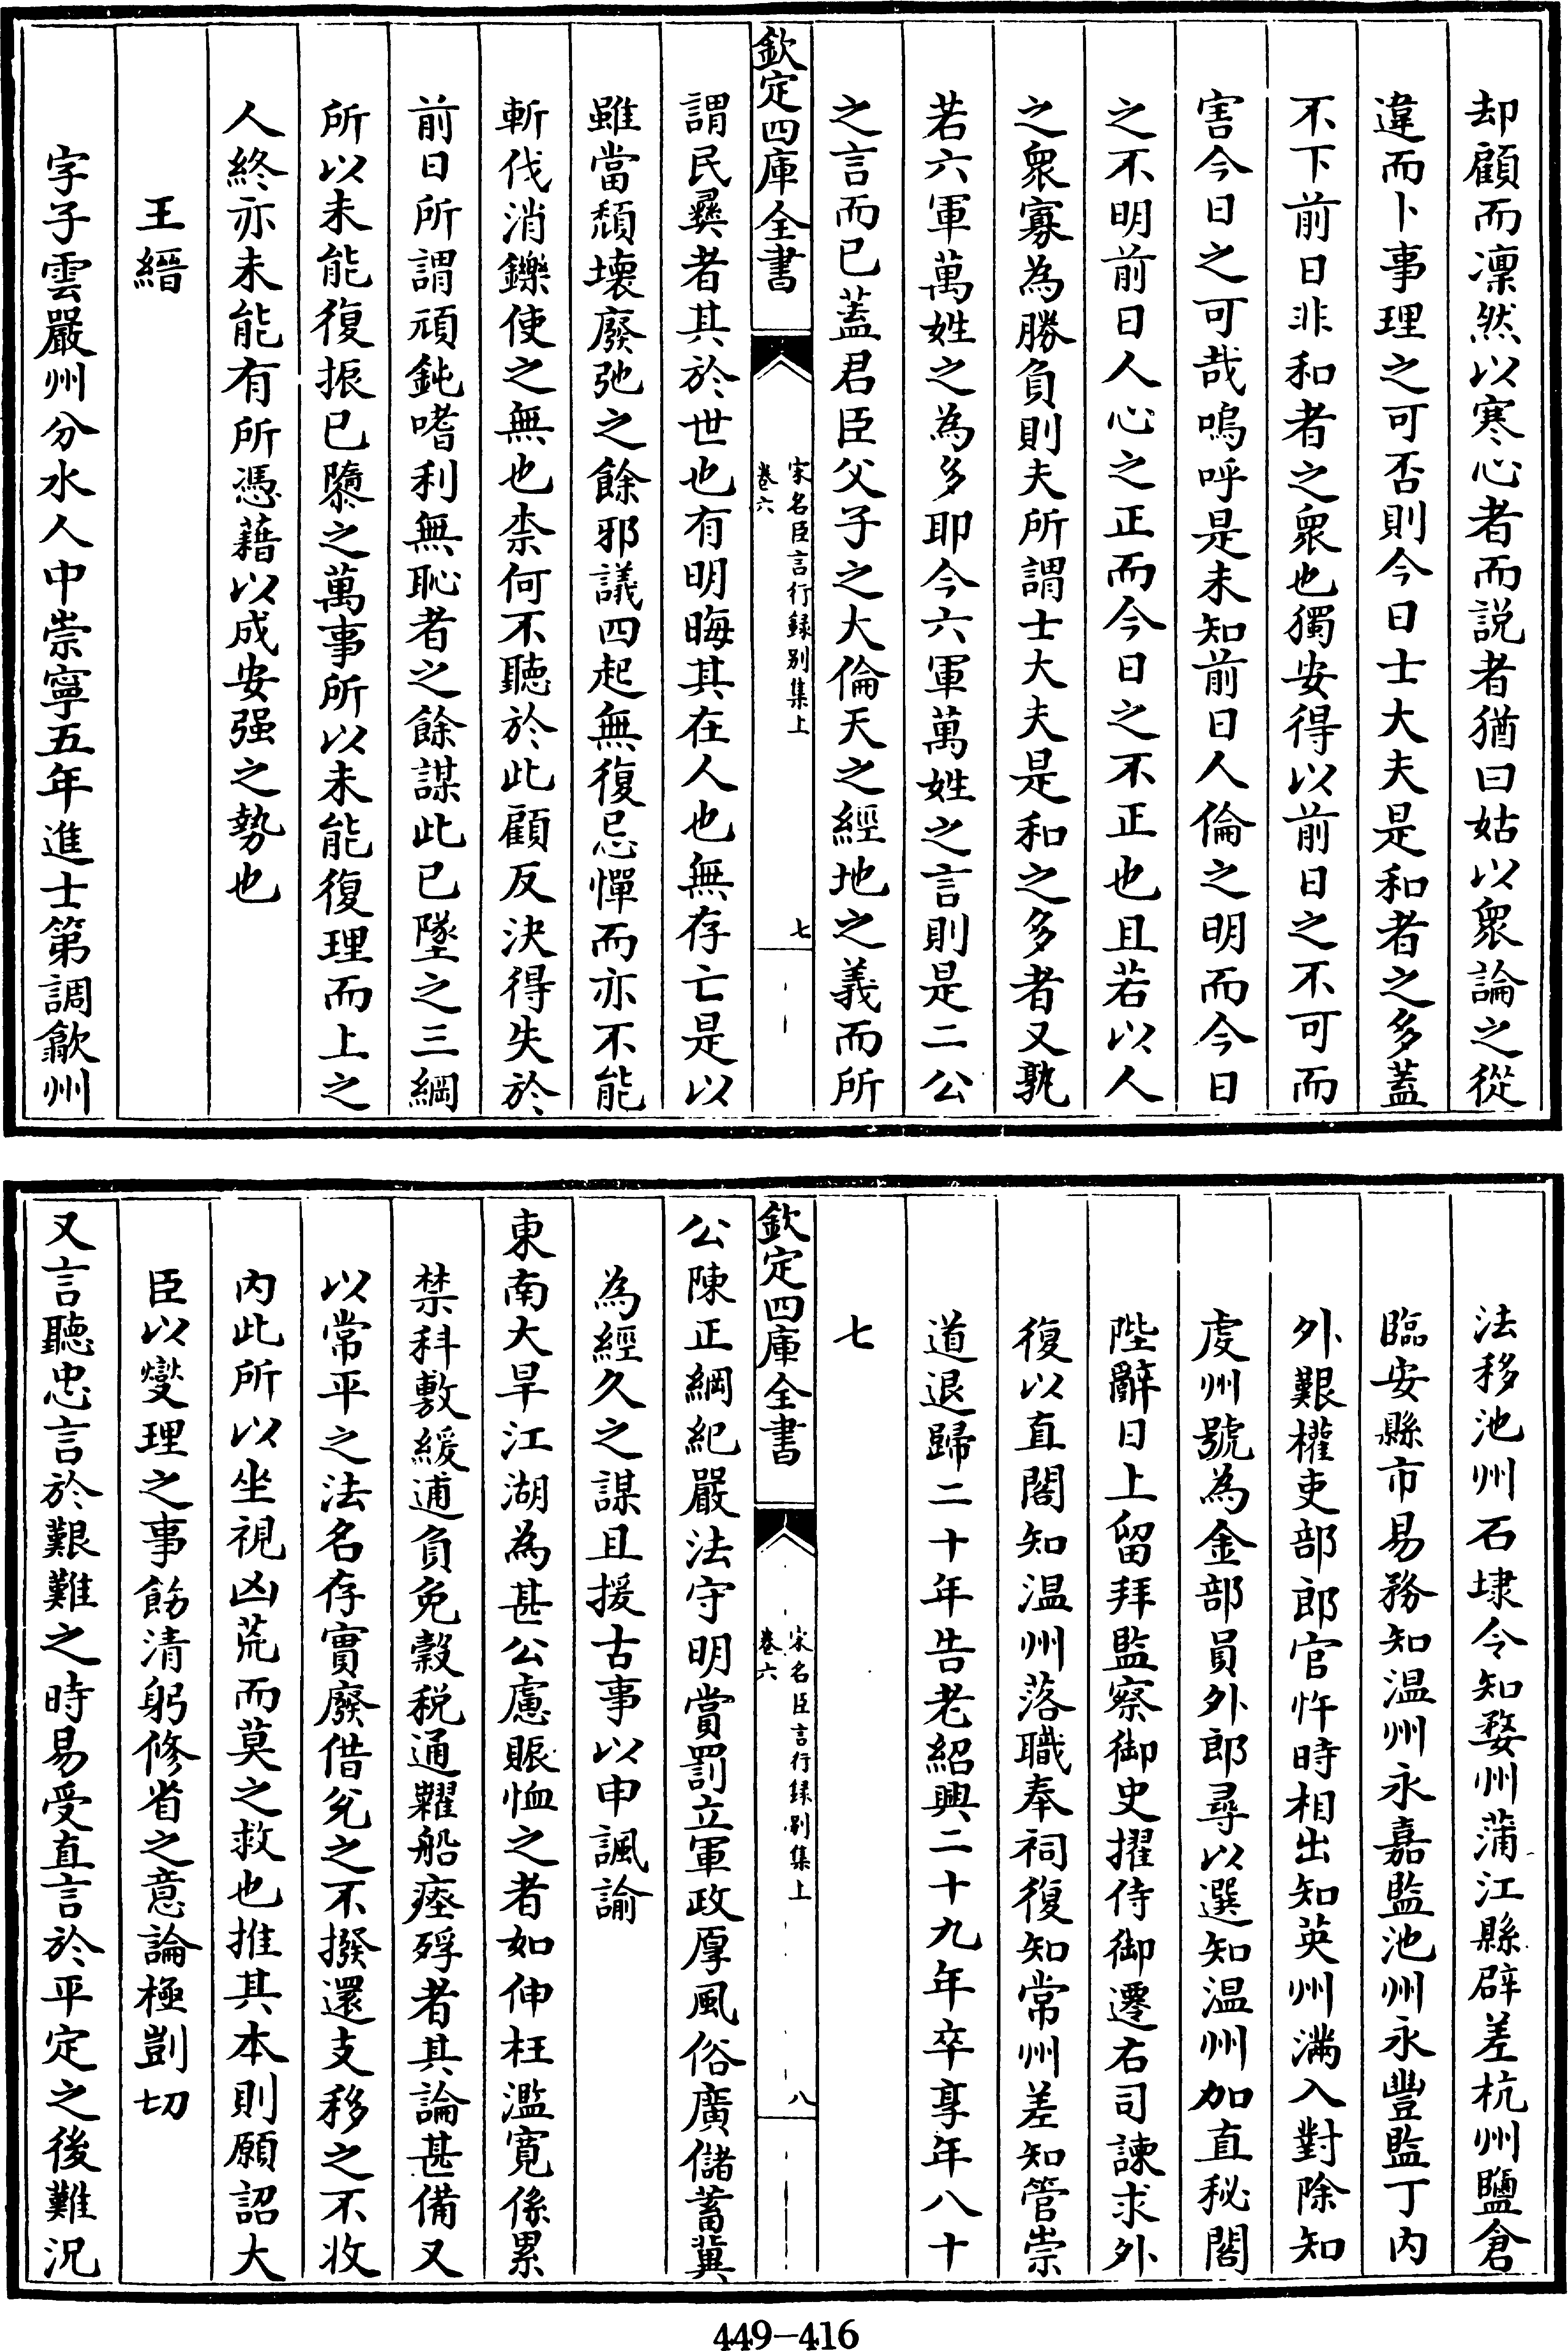 却顧而凛然以寒心者而説者猶曰姑以衆論之從
違而卜事理之可否則今日士大夫是和者之多蓋
不下前日非和者之衆也獨安得以前日之不可而
害今日之可哉嗚呼是未知前日人倫之明而今日
之不明前日人心之正而今日之不正也且若以人
之衆寡為勝負則夫所謂士大夫是和之多者又孰
若六軍萬姓之為多耶今六軍萬姓之言則是二公
之言而已蓋君臣父子之大倫天之經地之義而所
欽定四庫全書
宋名臣言行録别集上
卷六
七
謂民彛者其於世也有明晦其在人也無存亡是以
雖當頽壊廢弛之餘邪議四起無復忌憚而亦不能
斬伐消鑠使之無也柰何不聽於此顧反決得失於
前日所謂頑鈍嗜利無恥者之餘謀此已墜之三綱
所以未能復振已隳之萬事所以未能復理而上之
人終亦未能有所憑藉以成安强之勢也
王縉
字子雲嚴州分水人中崇寧五年進士第調歙州
法移池州石埭令知婺州蒲江縣辟差杭州鹽倉
臨安縣市易務知温州永嘉監池州永豐監丁内
外艱權吏部郎官忤時相出知英州滿入對除知
䖍州號為金部員外郎尋以選知温州加直秘閣
陛辭日上留拜監察御史擢侍御遷右司諫求外
復以直閣知温州落職奉祠復知常州差知管崇
道退歸二十年告老紹興二十九年卒享年八十
七
欽定四庫全書
宋名臣言行録别集上
卷六
八
公陳正綱紀嚴法守明賞罰立軍政厚風俗廣儲蓄冀
為經久之謀且援古事以申諷諭
東南大旱江湖為甚公慮賑恤之者如伸枉濫寛係累
禁科敷緩逋負免穀税通糶船瘞殍者其論甚備又
以常平之法名存實廢借兌之不撥還支移之不收
内此所以坐視凶荒而莫之救也推其本則願詔大
臣以爕理之事飭清躬修省之意論極剴切
又言聽忠言於艱難之時易受直言於平定之後難況
449—416